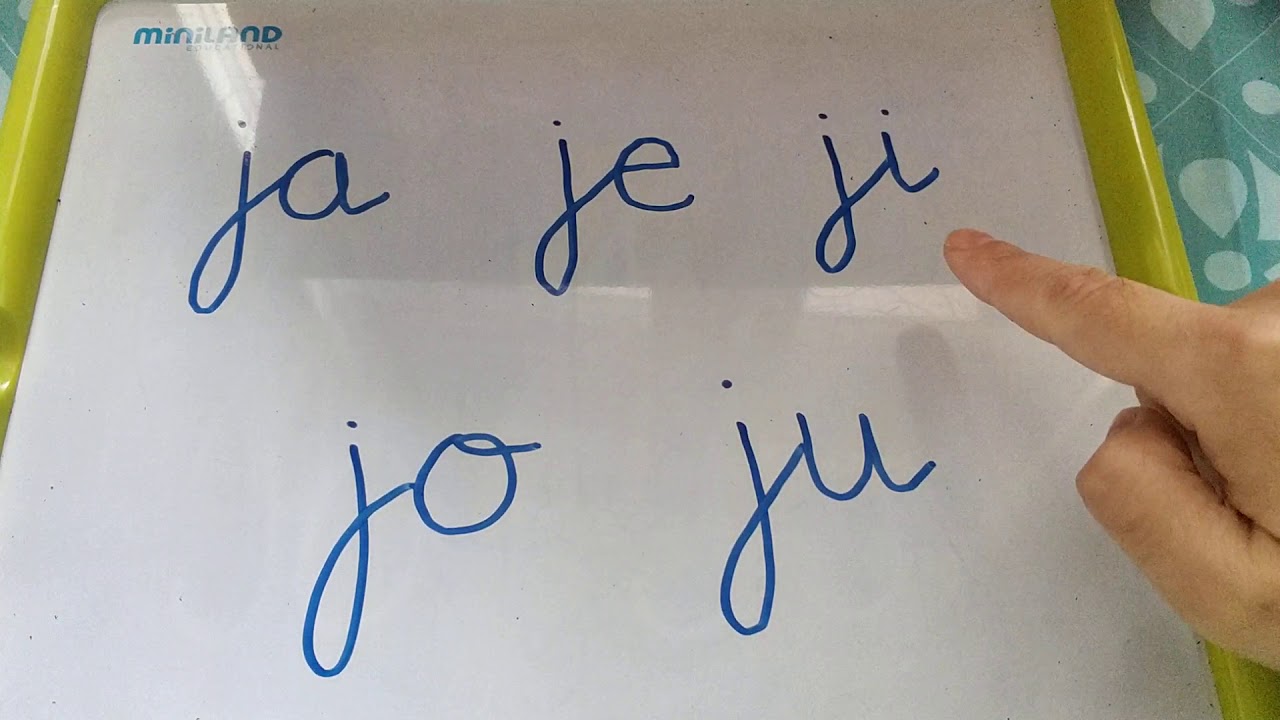 miniLAND
EDUCATIONAL
ja je ji
jo ju